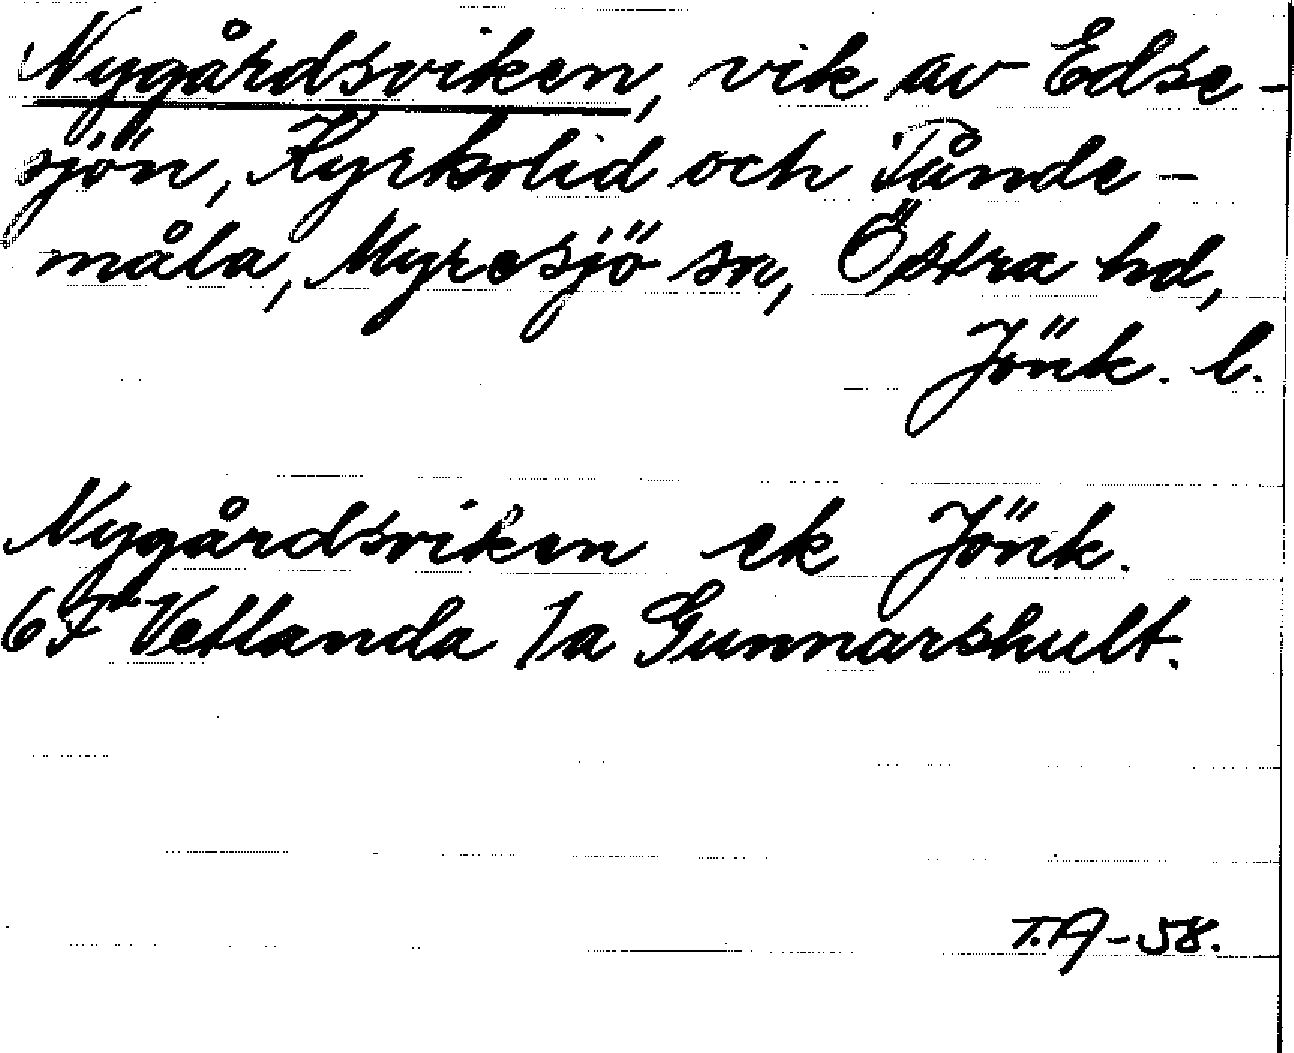 Nygårdsviken, vik av Edse-
sjön, Kyrkolid och Tånde-
måla, Myresjö sn, Östra hd,
Jönk. l.
Nygårdsviken ek Jönk.
6F Vetlanda 1a Gunnarshult.
T.A-58.